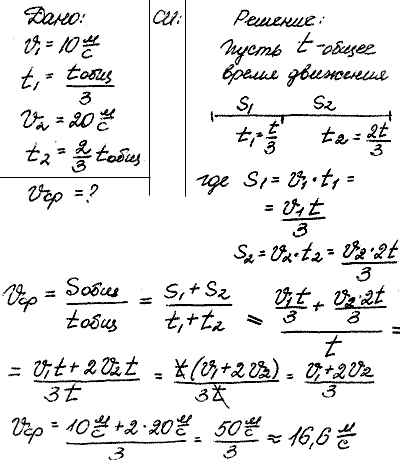 Дано:
v₁ = 10 м/с
t₁ = tобщ/3
v₂ = 20 м/с
t₂ = 2/3 tобщ
vср = ?
СИ:
Решение:
пусть t - общее
время движения
S₁ S₂
t₁ = t/3 t₂ = 2t/3
где S₁ = v₁ · t₁ =
= v₁t/3
S₂ = v₂ · t₂ = v₂ · 2t/3
vср = Sобщ/tобщ = (S₁ + S₂)/(t₁ + t₂) = (v₁t/3 + v₂ · 2t/3)/t =
= (v₁t + 2v₂t)/3t = t(v₁ + 2v₂)/3t = (v₁ + 2v₂)/3
vср = (10 м/с + 2 · 20 м/с)/3 = 50 м/с/3 ≈ 16,6 м/с